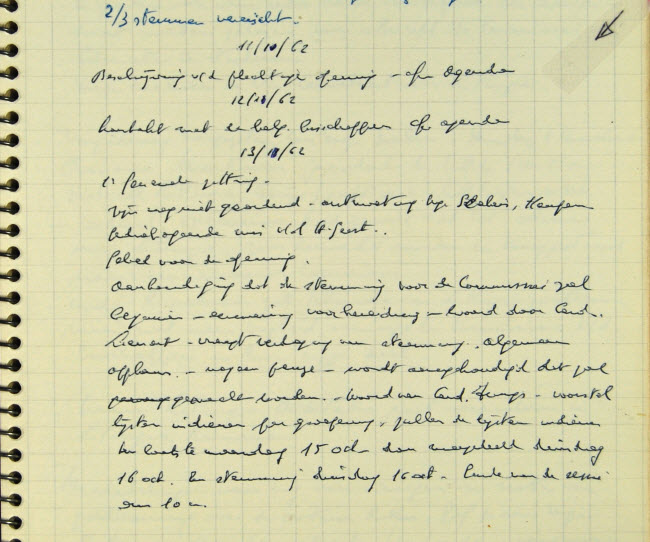 2/3 stemmen vereischt.
11/10/62
Beschrijving v/d plechtige opening - cfr agenda
12/10/62
kontakt met de belg. bisschoppen cfr agenda
13/10/62
1e generale zitting.
Zijn nog niet geordend - ontmoeting Mgr
mis v/d H. Geest..
Gebed voor de opening.
aankondiging dat de stemming voor de Commissies zal
beginnen - - woord door Card.
Lienart - vraagt verdaging van stemming. algemeen
applaus. - na een pauze - wordt aangekondigd dat zal
worden. - woord van Card. Frings - voorstel
lijsten indienen per groepering, zullen de lijsten indienen
ten laatste maandag 15 oct - dan meegedeeld dinsdag
16 oct. En stemming dinsdag 16 oct - Einde van de sessie
om 10 u.